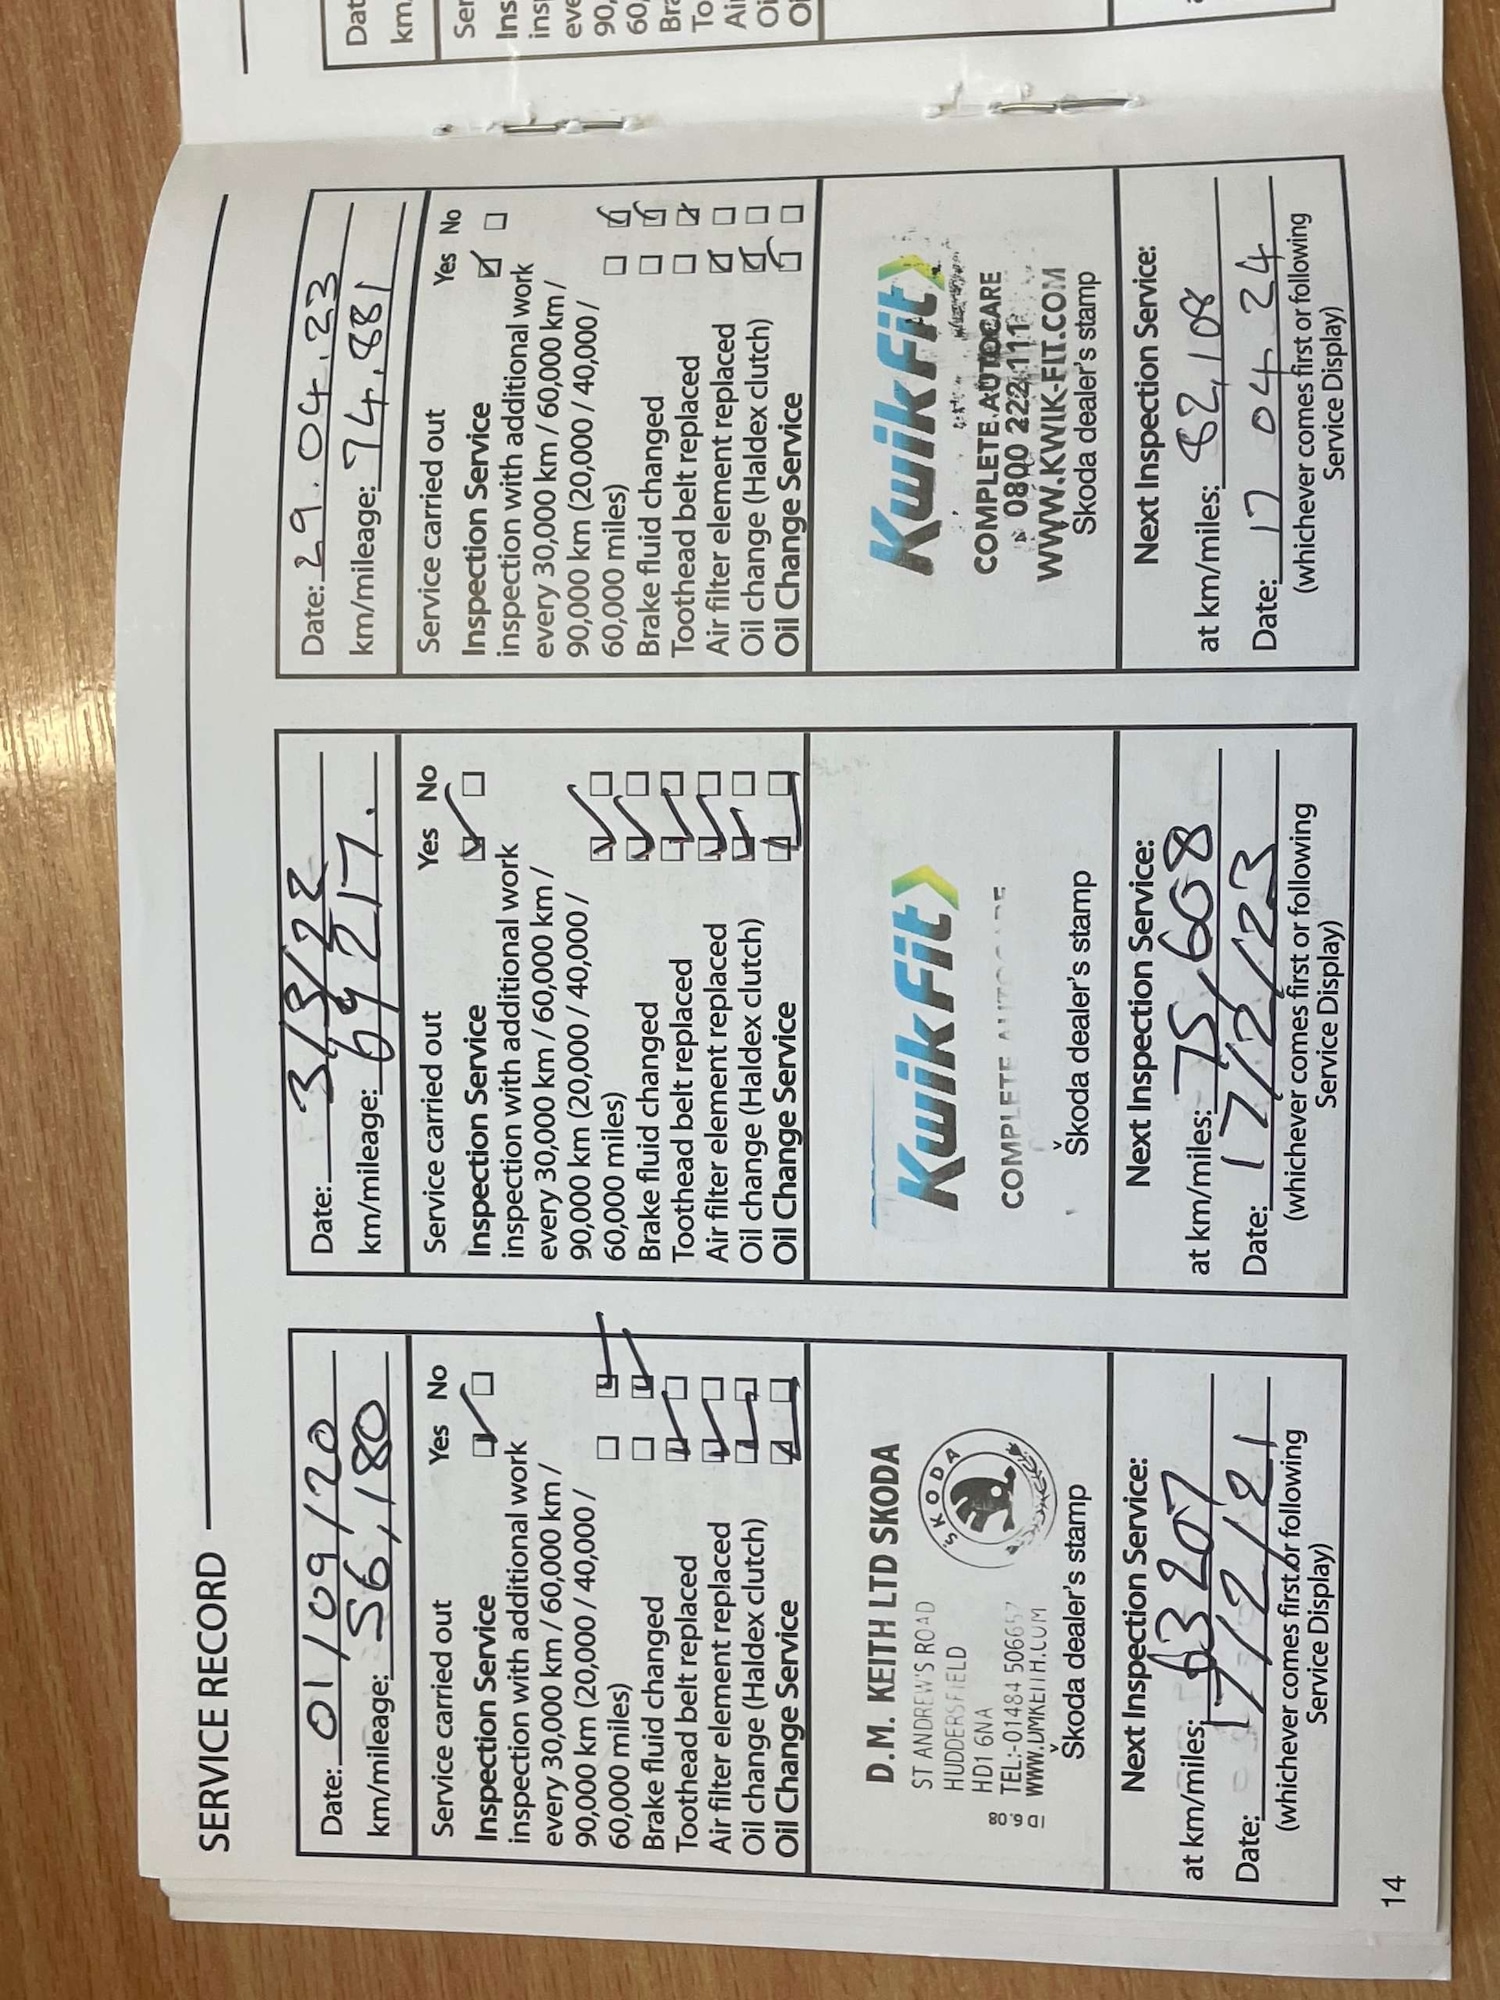 SERVICE RECORD
Date: 01/09/20
km/mileage: 56,180
Service carried out Yes No
Inspection Service
inspection with additional work
every 30,000 km / 60,000 km /
90,000 km (20,000 / 40,000 /
60,000 miles)
Brake fluid changed
Toothead belt replaced
Air filter element replaced
Oil change (Haldex clutch)
Oil Change Service
D.M. KEITH LTD SKODA
ST ANDREW'S ROAD
HUDDERSFIELD
HD1 6NA
TEL:-01484 506657
WWW.DMKEITH.COM
ID 6.08
ŠKODA
Škoda dealer's stamp
Next Inspection Service:
at km/miles: 63207
Date: 17/2/21
(whichever comes first or following
Service Display)
Date: 3/3/22
km/mileage: 69217.
Service carried out Yes No
Inspection Service
inspection with additional work
every 30,000 km / 60,000 km /
90,000 km (20,000 / 40,000 /
60,000 miles)
Brake fluid changed
Toothead belt replaced
Air filter element replaced
Oil change (Haldex clutch)
Oil Change Service
KwikFit
COMPLETE AUTOCARE
Škoda dealer's stamp
Next Inspection Service:
at km/miles: 75,608
Date: 17/2/23
(whichever comes first or following
Service Display)
Date: 29.04.23
km/mileage: 74,881
Service carried out Yes No
Inspection Service
inspection with additional work
every 30,000 km / 60,000 km /
90,000 km (20,000 / 40,000 /
60,000 miles)
Brake fluid changed
Toothead belt replaced
Air filter element replaced
Oil change (Haldex clutch)
Oil Change Service
KwikFit
COMPLETE AUTOCARE
0800 222 111
WWW.KWIK-FIT.COM
Škoda dealer's stamp
Next Inspection Service:
at km/miles: 82,108
Date: 17 04 24
(whichever comes first or following
Service Display)
14